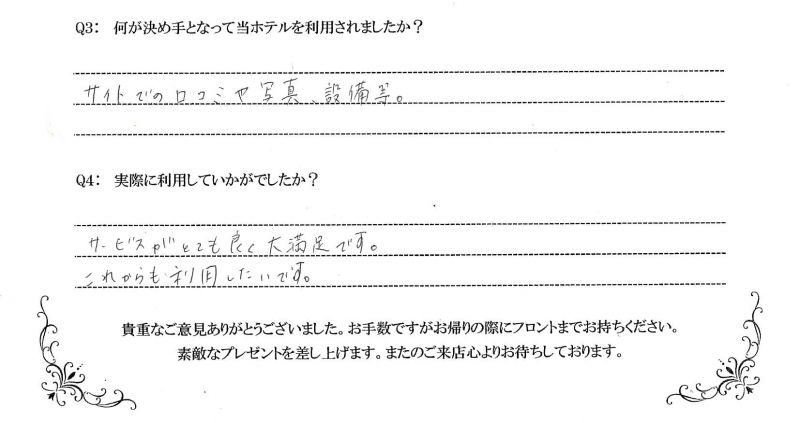 Q3： 何が決め手となって当ホテルを利用されましたか？
サイトでの口コミや写真、設備等。
Q4： 実際に利用していかがでしたか？
サービスがとても良く大満足です。
これからも利用したいです。
貴重なご意見ありがとうございました。お手数ですがお帰りの際にフロントまでお持ちください。
素敵なプレゼントを差し上げます。またのご来店心よりお待ちしております。